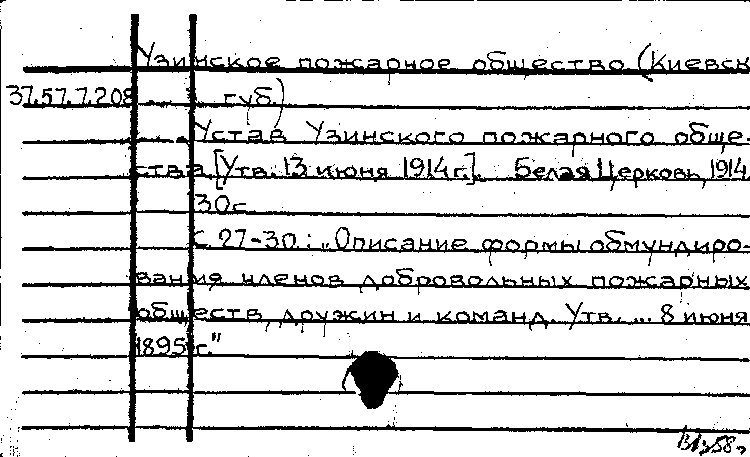 Узинское пожарное общество (Киевск
37.57.7.208 губ.)
Устав Узинского пожарного обще-
ства. [Утв. 13 июня 1914 г.]. Белая Церковь, 1914.
30 с.
С. 27-30: „Описание формы обмундиро-
вания членов добровольных пожарных
обществ, дружин и команд. Утв. ... 8 июня
1895 г."